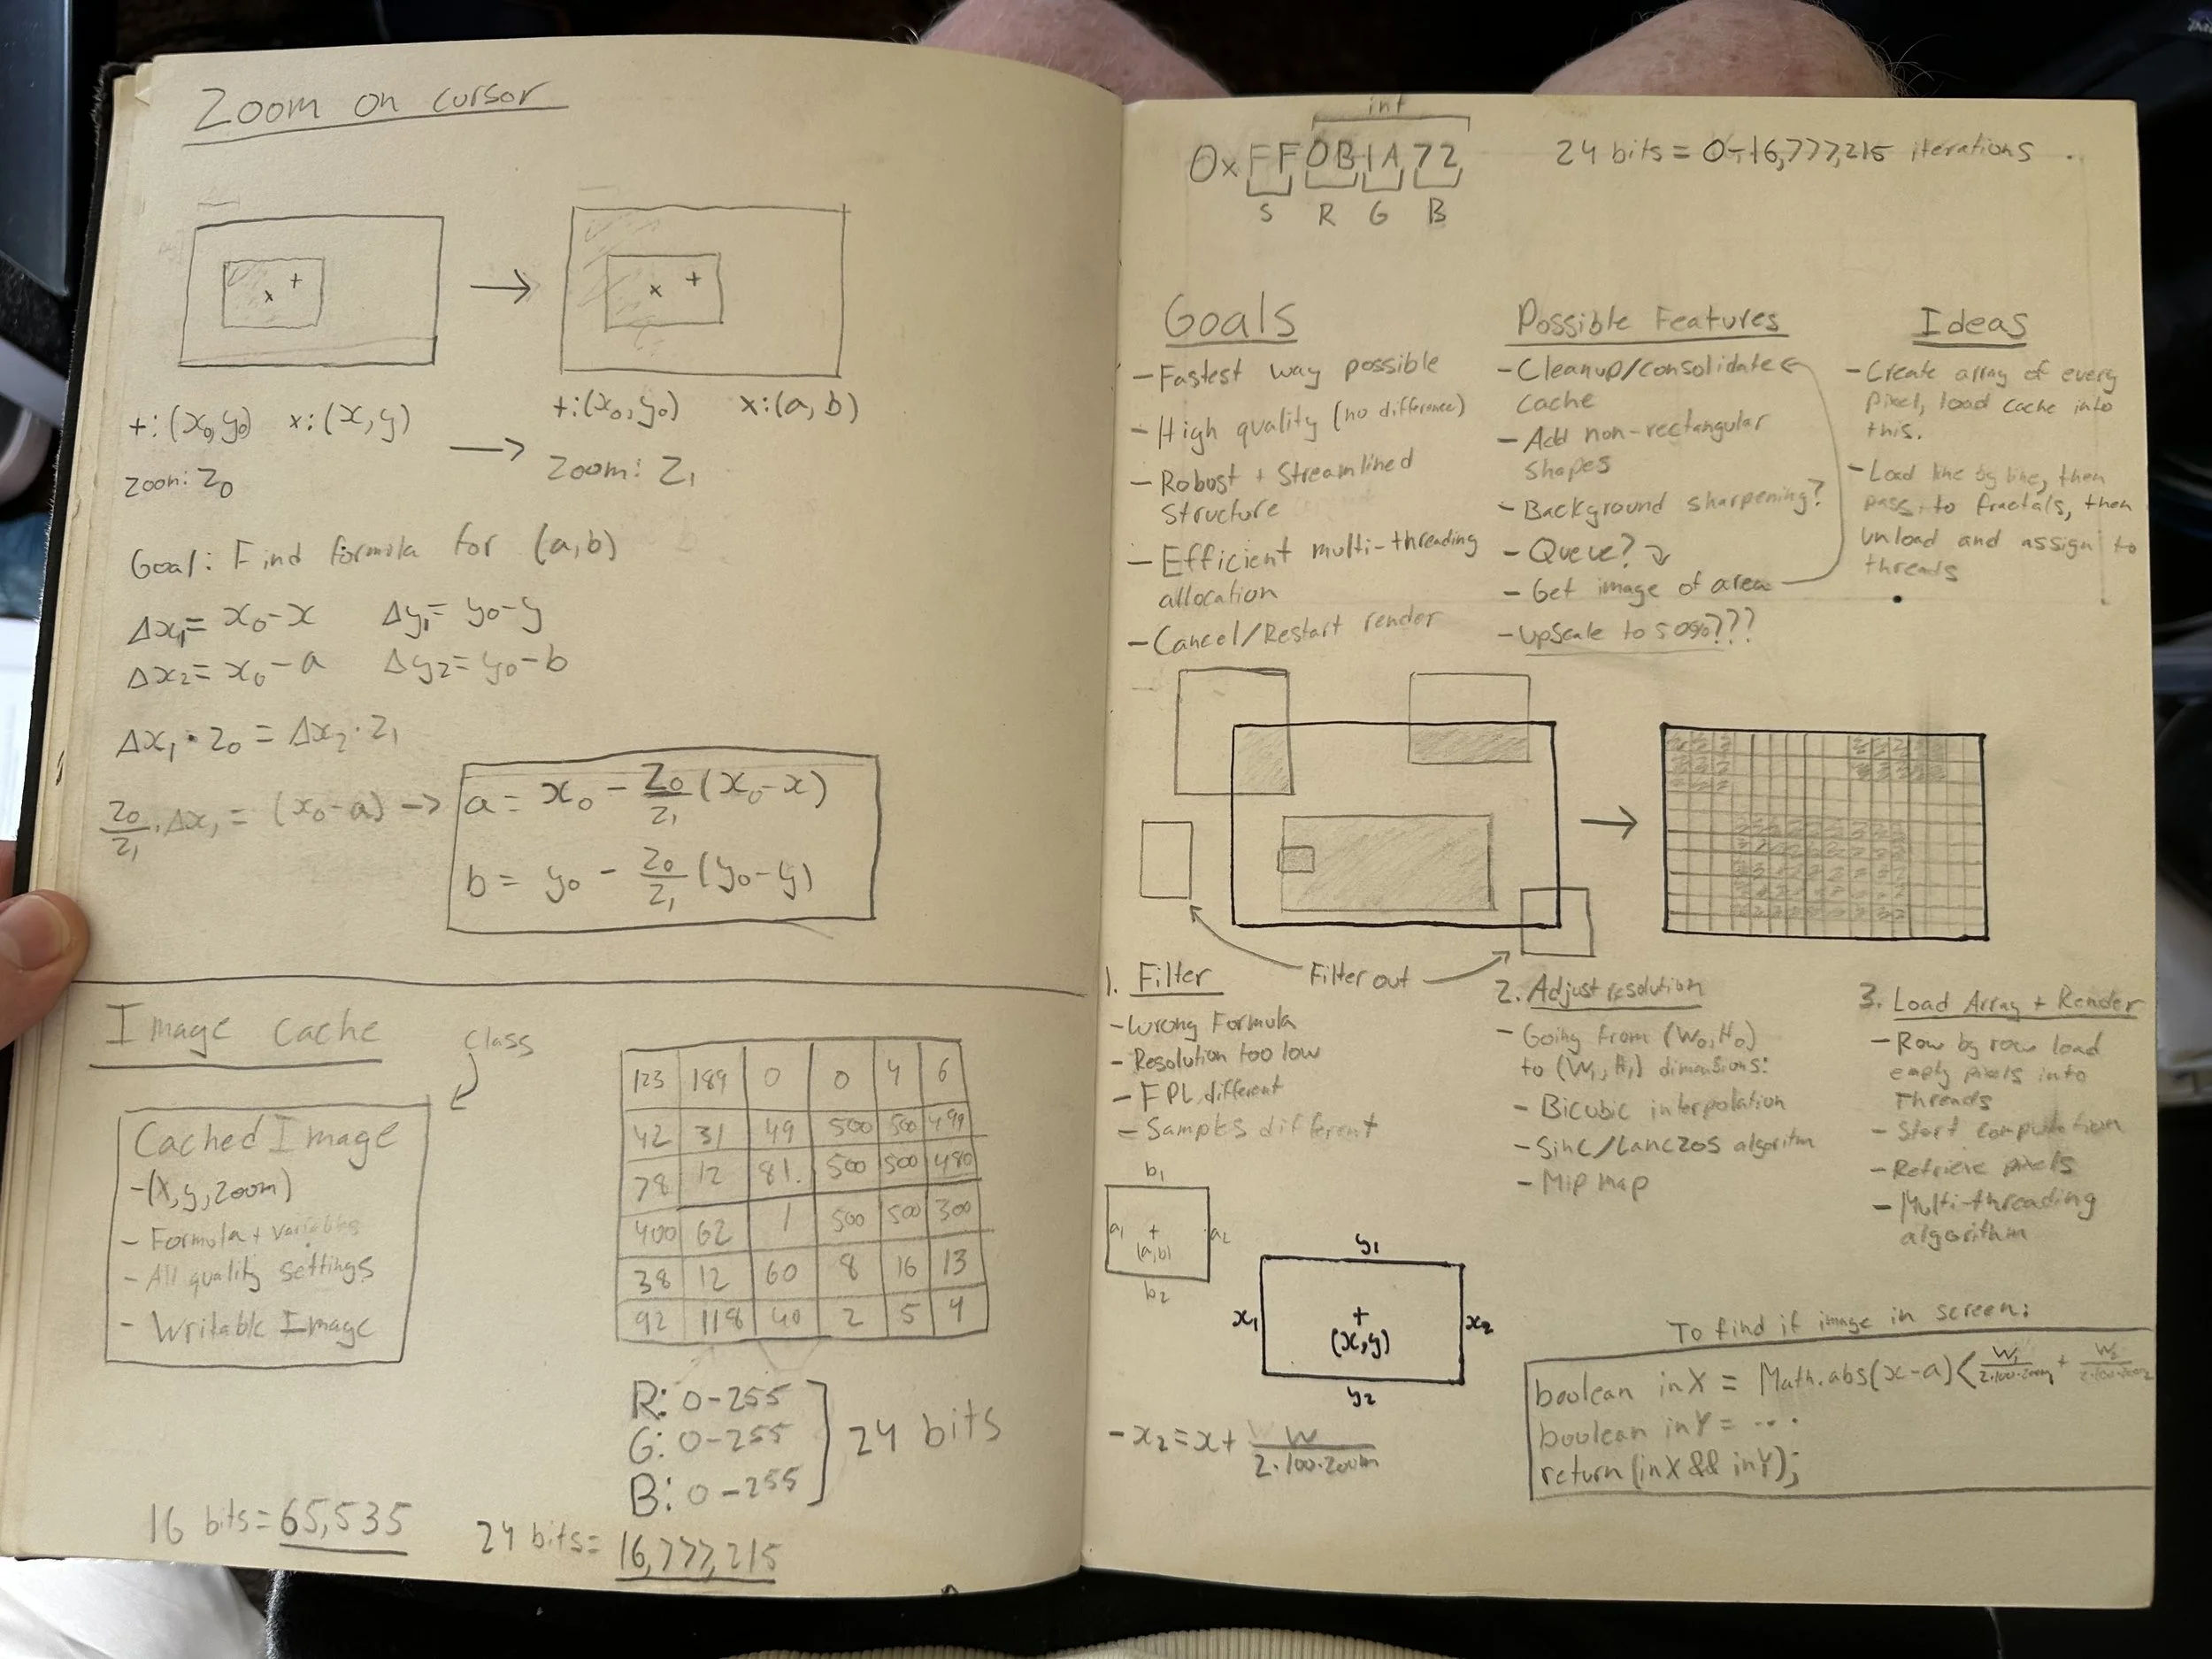 Zoom on cursor
+:(x₀,y₀) x:(x,y)
zoom: Z₀
+:(x₀,y₀) x:(a,b)
Zoom: Z₁
Goal: Find formula for (a,b)
Δx₁= x₀-x Δy₁= y₀-y
Δx₂= x₀-a Δy₂= y₀-b
Δx₁·Z₀ = Δx₂·Z₁
Z₀/Z₁·Δx₁ = (x₀-a) →
a = x₀ - Z₀/Z₁ (x₀-x)
b = y₀ - Z₀/Z₁ (y₀-y)
Image Cache
Class
Cached Image
-(x,y,zoom)
- Formula + variables
- All quality settings
- Writable Image
123 189 0 0 4 6
42 31 49 500 500 499
78 12 81. 500 500 480
400 62 1 500 500 300
38 12 60 8 16 13
92 118 40 2 5 4
R: 0-255
G: 0-255
B: 0-255
24 bits
16 bits = 65,535
24 bits = 16,777,215
int
0xFF0B1A72
S R G B
24 bits = 0-16,777,215 iterations
Goals
- Fastest way possible
- High quality (no difference)
- Robust + Streamlined
structure
- Efficient multi-threading
allocation
- Cancel/Restart render
Possible Features
- Cleanup/consolidate
cache
- Add non-rectangular
shapes
- Background sharpening?
- Queue?
- Get image of area
- Upscale to 50%???
Ideas
- Create array of every
pixel, load cache into
this.
- Load line by line, then
pass to fractals, then
unload and assign to
threads
Filter out
1. Filter
- Wrong Formula
- Resolution too low
- FPL different
- Samples different
2. Adjust resolution
- Going from (W₀,H₀)
to (W₁,H₁) dimensions:
- Bicubic interpolation
- Sinc/Lanczos algoritm
- Mip map
3. Load Array + Render
- Row by row load
empty pixels into
Threads
- Start computation
- Retrieve pixels
- Multi-threading
algorithm
b₁
a₁ + a₂
(a,b)
b₂
y₁
x₁ + x₂
(x,y)
y₂
- x₂ = x + W/2·100·zoom
To find if image in screen:
boolean inX = Math.abs(x-a) < W₁/2·100·zoom₁ + W₂/2·100·zoom₂
boolean inY = ...
return (inX && inY);